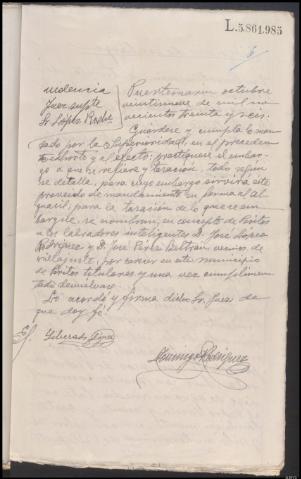 L.5.861.985
Juez supte
Sr López Pardo
Puertomarín octubre
veintinueve de mil no
vecientos treinta y seis.
Guardese y cumpla lo man
dado por la Superioridad, en el preceden
te exhorto y al efecto, practiquese el embar
go a que se refiere y tasación, todo segun
se detalla, para cuyo embargo servirá este
proveido de mandamiento en forma al Al
guacil, para la tasación de lo que se em
bargue, se nombran en concepto de peritos
a los labradores inteligentes D. José López
Rodríguez y D. José Beltrán vecinos de
por carecer en este municipio
de Peritos titulares y una vez cumplimen
tado devuelvase.
Lo acordó y firma dicho Sr. Juez de
que doy fé.
Domingo Rodríguez